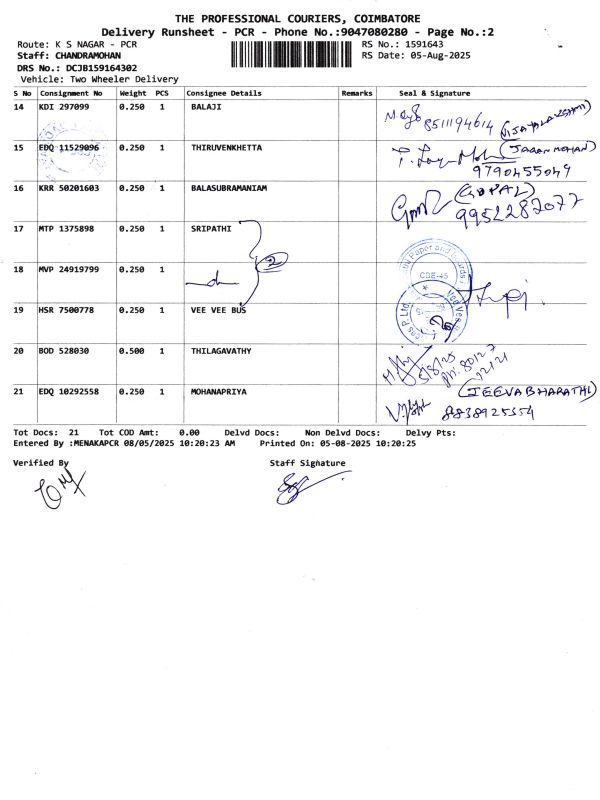 THE PROFESSIONAL COURIERS, COIMBATORE
Delivery Runsheet - PCR - Phone No.:9047080280 - Page No.:2
Route: K S NAGAR - PCR RS No.: 1591643
Staff: CHANDRAMOHAN RS Date: 05-Aug-2025
DRS No.: DCJB159164302
Vehicle: Two Wheeler Delivery
S No Consignment No Weight PCS Consignee Details Remarks Seal & Signature
14 KDI 297099 0.250 1 BALAJI
8511194614 (VIJAYALAKSHMI)
15 EDQ 11529096 0.250 1 THIRUVENKHETTA (JAGAN MOHAN)
9790455049
16 KRR 50201603 0.250 1 BALASUBRAMANIAM (GOPAL)
9952287077
17 MTP 1375898 0.250 1 SRIPATHI
2
18 MVP 24919799 0.250 1
CBE-45
19 HSR 7500778 0.250 1 VEE VEE BUS
20 BOD 528030 0.500 1 THILAGAVATHY
5/8/25
PH: 80127
12121
21 EDQ 10292558 0.250 1 MOHANAPRIYA (JEEVABHARATHI)
8838925554
Tot Docs: 21 Tot COD Amt: 0.00 Delvd Docs: Non Delvd Docs: Delvy Pts:
Entered By :MENAKAPCR 08/05/2025 10:20:23 AM Printed On: 05-08-2025 10:20:25
Verified By Staff Signature